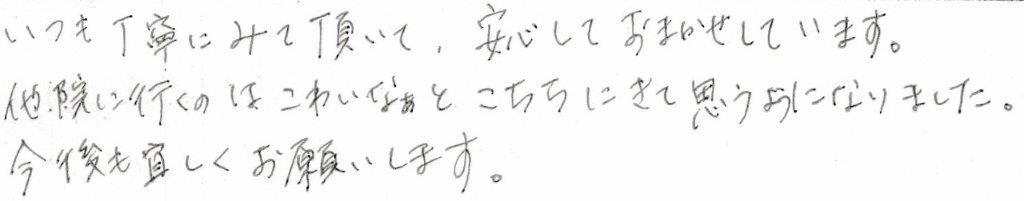 いつも丁寧にみて頂いて、安心しておまかせしています。
他院に行くのはこわいなぁとこちらにきて思うようになりました。
今後も宜しくお願いします。